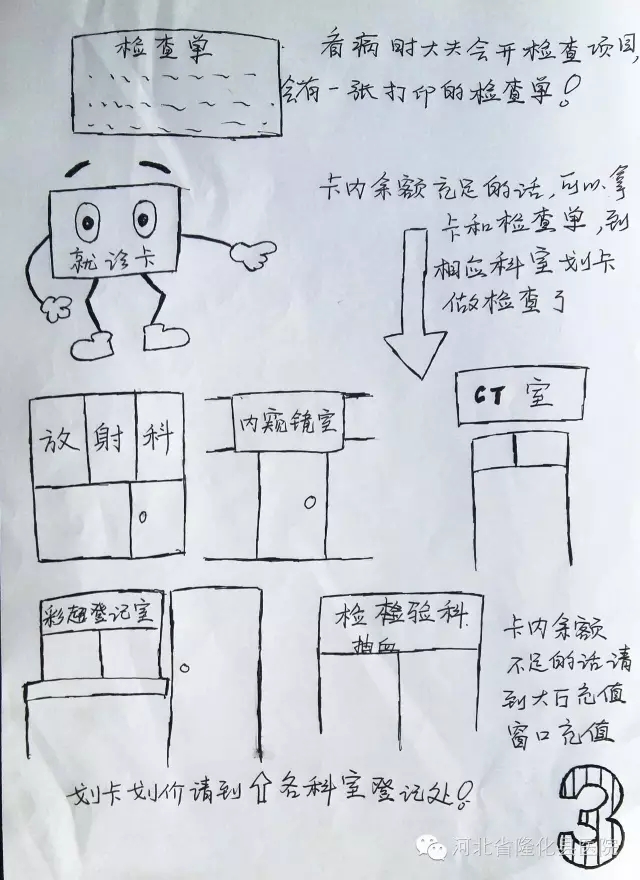 检查单
看病时大夫会开检查项目,
会有一张打印的检查单!
就诊卡
卡内余额充足的话,可以拿
卡和检查单,到
相应科室划卡
做检查了
放射科
内窥镜室
CT室
彩超登记室
检 检验科
抽血
卡内余额
不足的话请
到大厅充值
窗口充值
划卡划价请到⇧各科室登记处!
3
河北省隆化县医院